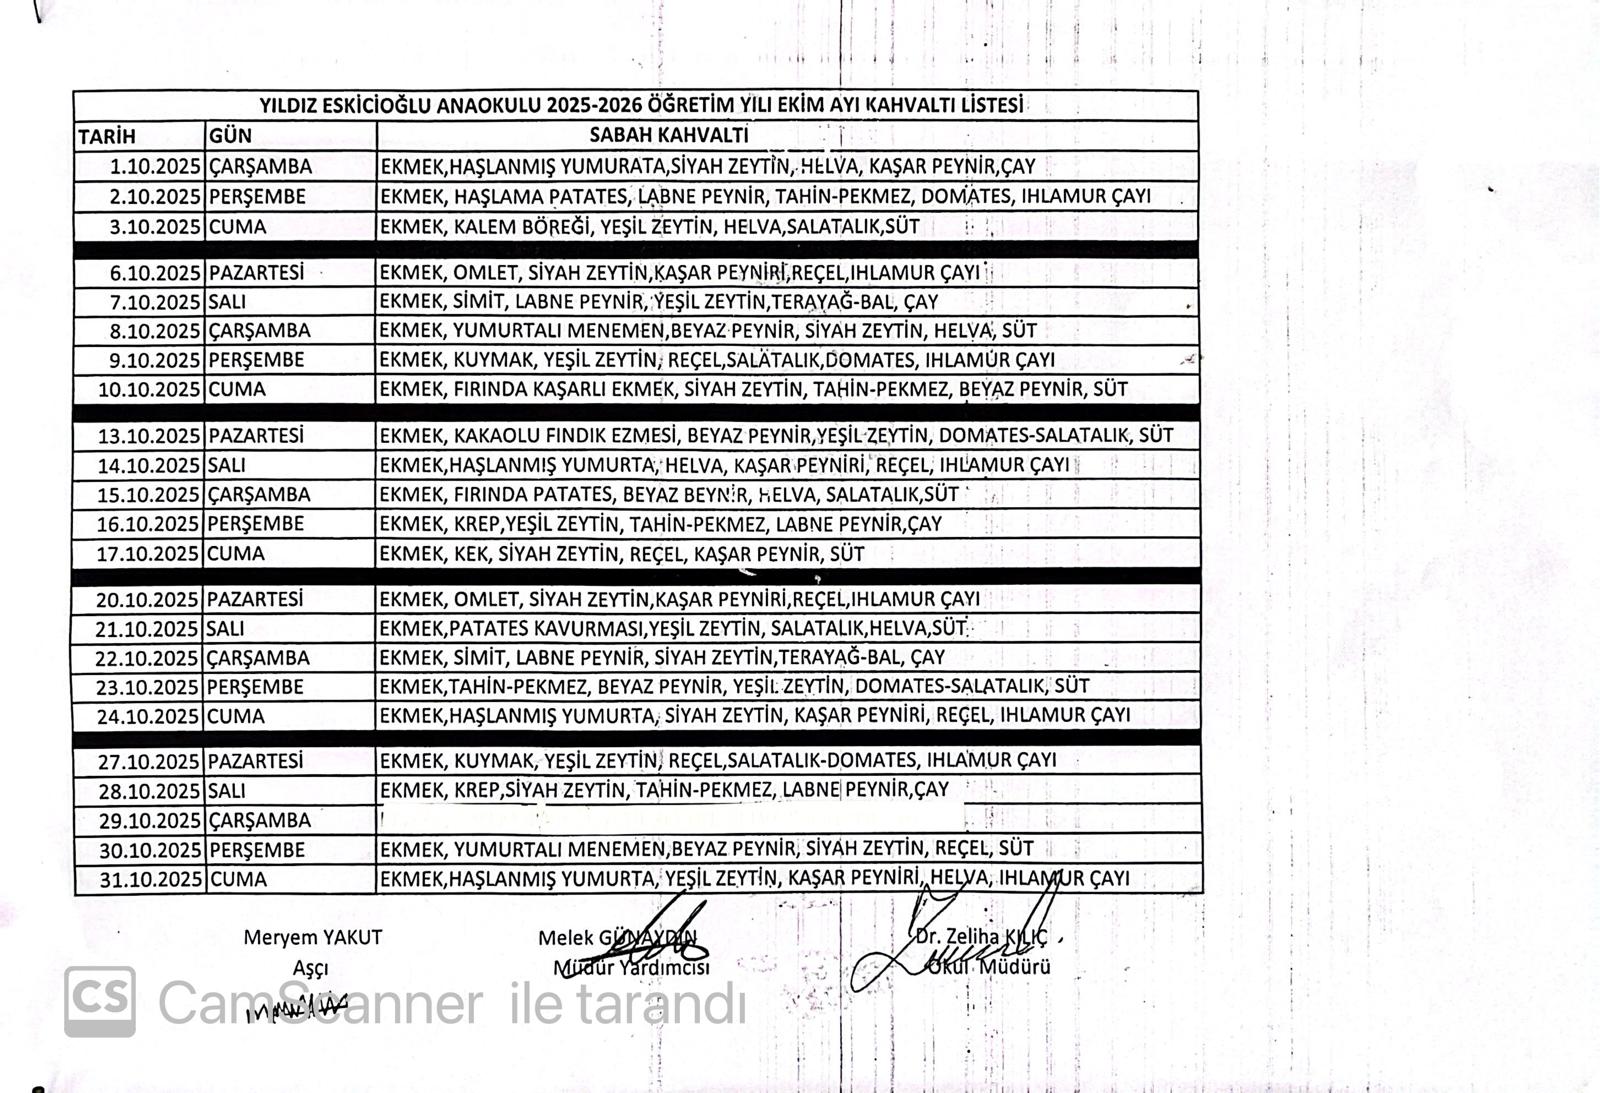 YILDIZ ESKİCİOĞLU ANAOKULU 2025-2026 ÖĞRETİM YILI EKİM AYI KAHVALTI LİSTESİ
TARİH GÜN SABAH KAHVALTI
1.10.2025 ÇARŞAMBA EKMEK,HAŞLANMIŞ YUMURATA,SİYAH ZEYTİN, HELVA, KAŞAR PEYNİR,ÇAY
2.10.2025 PERŞEMBE EKMEK, HAŞLAMA PATATES, LABNE PEYNİR, TAHİN-PEKMEZ, DOMATES, IHLAMUR ÇAYI
3.10.2025 CUMA EKMEK, KALEM BÖREĞİ, YEŞİL ZEYTİN, HELVA,SALATALIK,SÜT
6.10.2025 PAZARTESİ EKMEK, OMLET, SİYAH ZEYTİN,KAŞAR PEYNİRİ,REÇEL,IHLAMUR ÇAYI
7.10.2025 SALI EKMEK, SİMİT, LABNE PEYNİR, YEŞİL ZEYTİN,TERAYAĞ-BAL, ÇAY
8.10.2025 ÇARŞAMBA EKMEK, YUMURTALI MENEMEN,BEYAZ PEYNİR, SİYAH ZEYTİN, HELVA, SÜT
9.10.2025 PERŞEMBE EKMEK, KUYMAK, YEŞİL ZEYTİN, REÇEL,SALATALIK,DOMATES, IHLAMUR ÇAYI
10.10.2025 CUMA EKMEK, FIRINDA KAŞARLI EKMEK, SİYAH ZEYTİN, TAHİN-PEKMEZ, BEYAZ PEYNİR, SÜT
13.10.2025 PAZARTESİ EKMEK, KAKAOLU FINDIK EZMESİ, BEYAZ PEYNİR,YEŞİL ZEYTİN, DOMATES-SALATALIK, SÜT
14.10.2025 SALI EKMEK,HAŞLANMIŞ YUMURTA, HELVA, KAŞAR PEYNİRİ, REÇEL, IHLAMUR ÇAYI
15.10.2025 ÇARŞAMBA EKMEK, FIRINDA PATATES, BEYAZ BEYNİR, HELVA, SALATALIK,SÜT
16.10.2025 PERŞEMBE EKMEK, KREP,YEŞİL ZEYTİN, TAHİN-PEKMEZ, LABNE PEYNİR,ÇAY
17.10.2025 CUMA EKMEK, KEK, SİYAH ZEYTİN, REÇEL, KAŞAR PEYNİR, SÜT
20.10.2025 PAZARTESİ EKMEK, OMLET, SİYAH ZEYTİN,KAŞAR PEYNİRİ,REÇEL,IHLAMUR ÇAYI
21.10.2025 SALI EKMEK,PATATES KAVURMASI,YEŞİL ZEYTİN, SALATALIK,HELVA,SÜT
22.10.2025 ÇARŞAMBA EKMEK, SİMİT, LABNE PEYNİR, SİYAH ZEYTİN,TERAYAĞ-BAL, ÇAY
23.10.2025 PERŞEMBE EKMEK,TAHİN-PEKMEZ, BEYAZ PEYNİR, YEŞİL ZEYTİN, DOMATES-SALATALIK, SÜT
24.10.2025 CUMA EKMEK,HAŞLANMIŞ YUMURTA, SİYAH ZEYTİN, KAŞAR PEYNİRİ, REÇEL, IHLAMUR ÇAYI
27.10.2025 PAZARTESİ EKMEK, KUYMAK, YEŞİL ZEYTİN, REÇEL,SALATALIK-DOMATES, IHLAMUR ÇAYI
28.10.2025 SALI EKMEK, KREP,SİYAH ZEYTİN, TAHİN-PEKMEZ, LABNE PEYNİR,ÇAY
29.10.2025 ÇARŞAMBA
30.10.2025 PERŞEMBE EKMEK, YUMURTALI MENEMEN,BEYAZ PEYNİR, SİYAH ZEYTİN, REÇEL, SÜT
31.10.2025 CUMA EKMEK,HAŞLANMIŞ YUMURTA, YEŞİL ZEYTİN, KAŞAR PEYNİRİ, HELVA, IHLAMUR ÇAYI
Meryem YAKUT Melek GÜNAYDIN Dr. Zeliha KILIÇ
Aşçı Müdür Yardımcısı Okul Müdürü
CS CamScanner ile tarandı